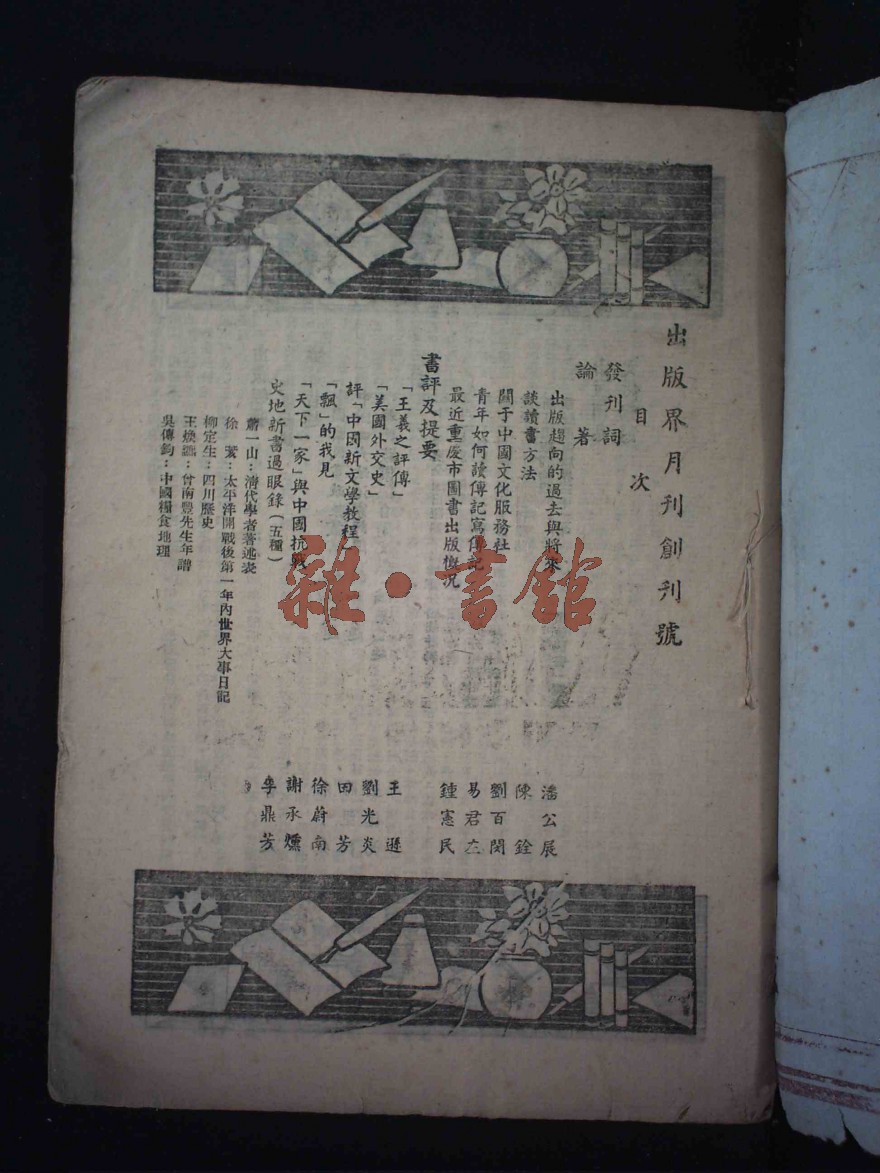 出版界月刊創刊號
目次
發刊詞
論著
出版趨向的過去與將來 潘公展
談讀書方法 陳銓
關于中國文化服務社 劉百閔
青年如何讀傳記寫傳記 易君左
最近重慶市圖書出版概況 鍾憲民
書評及提要
「王羲之評傳」 王遜
「美國外交史」 劉光炎
評「中國新文學教程」 田芳
「飄」的我見 徐蔚南
「天下一家」與中國抗戰 謝承燻
史地新書過眼錄（五種） 李鼎芳
蕭一山：清代學者著述表
徐 ：太平洋開戰後第一年內世界大事日記
柳定生：四川歷史
王煥鑣：曾南豐先生年譜
吳傳鈞：中國糧食地理
雜·書館